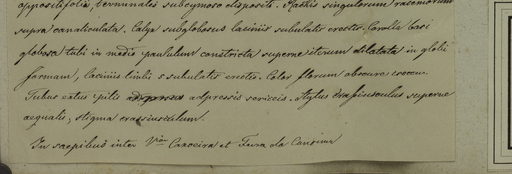 oppositifolia, terminales subcymoso dispositi. Rachis singulorum racemorum
supra canaliculata. Calyx subglobosus laciniis subulatis erectis. Corolla basi
globosa tubi in medio paululum constricta superne iterum dilatata in globi
formam, laciniis limbi 5 subulatis erectis. Color florum obscure coccin.
Tubus extus pilis adpressis sericeis. Stylus crassiusculus superne
aequalis, stigma crassiusculum.
In saepibus inter Va Cazoeira et Feira da Conceic